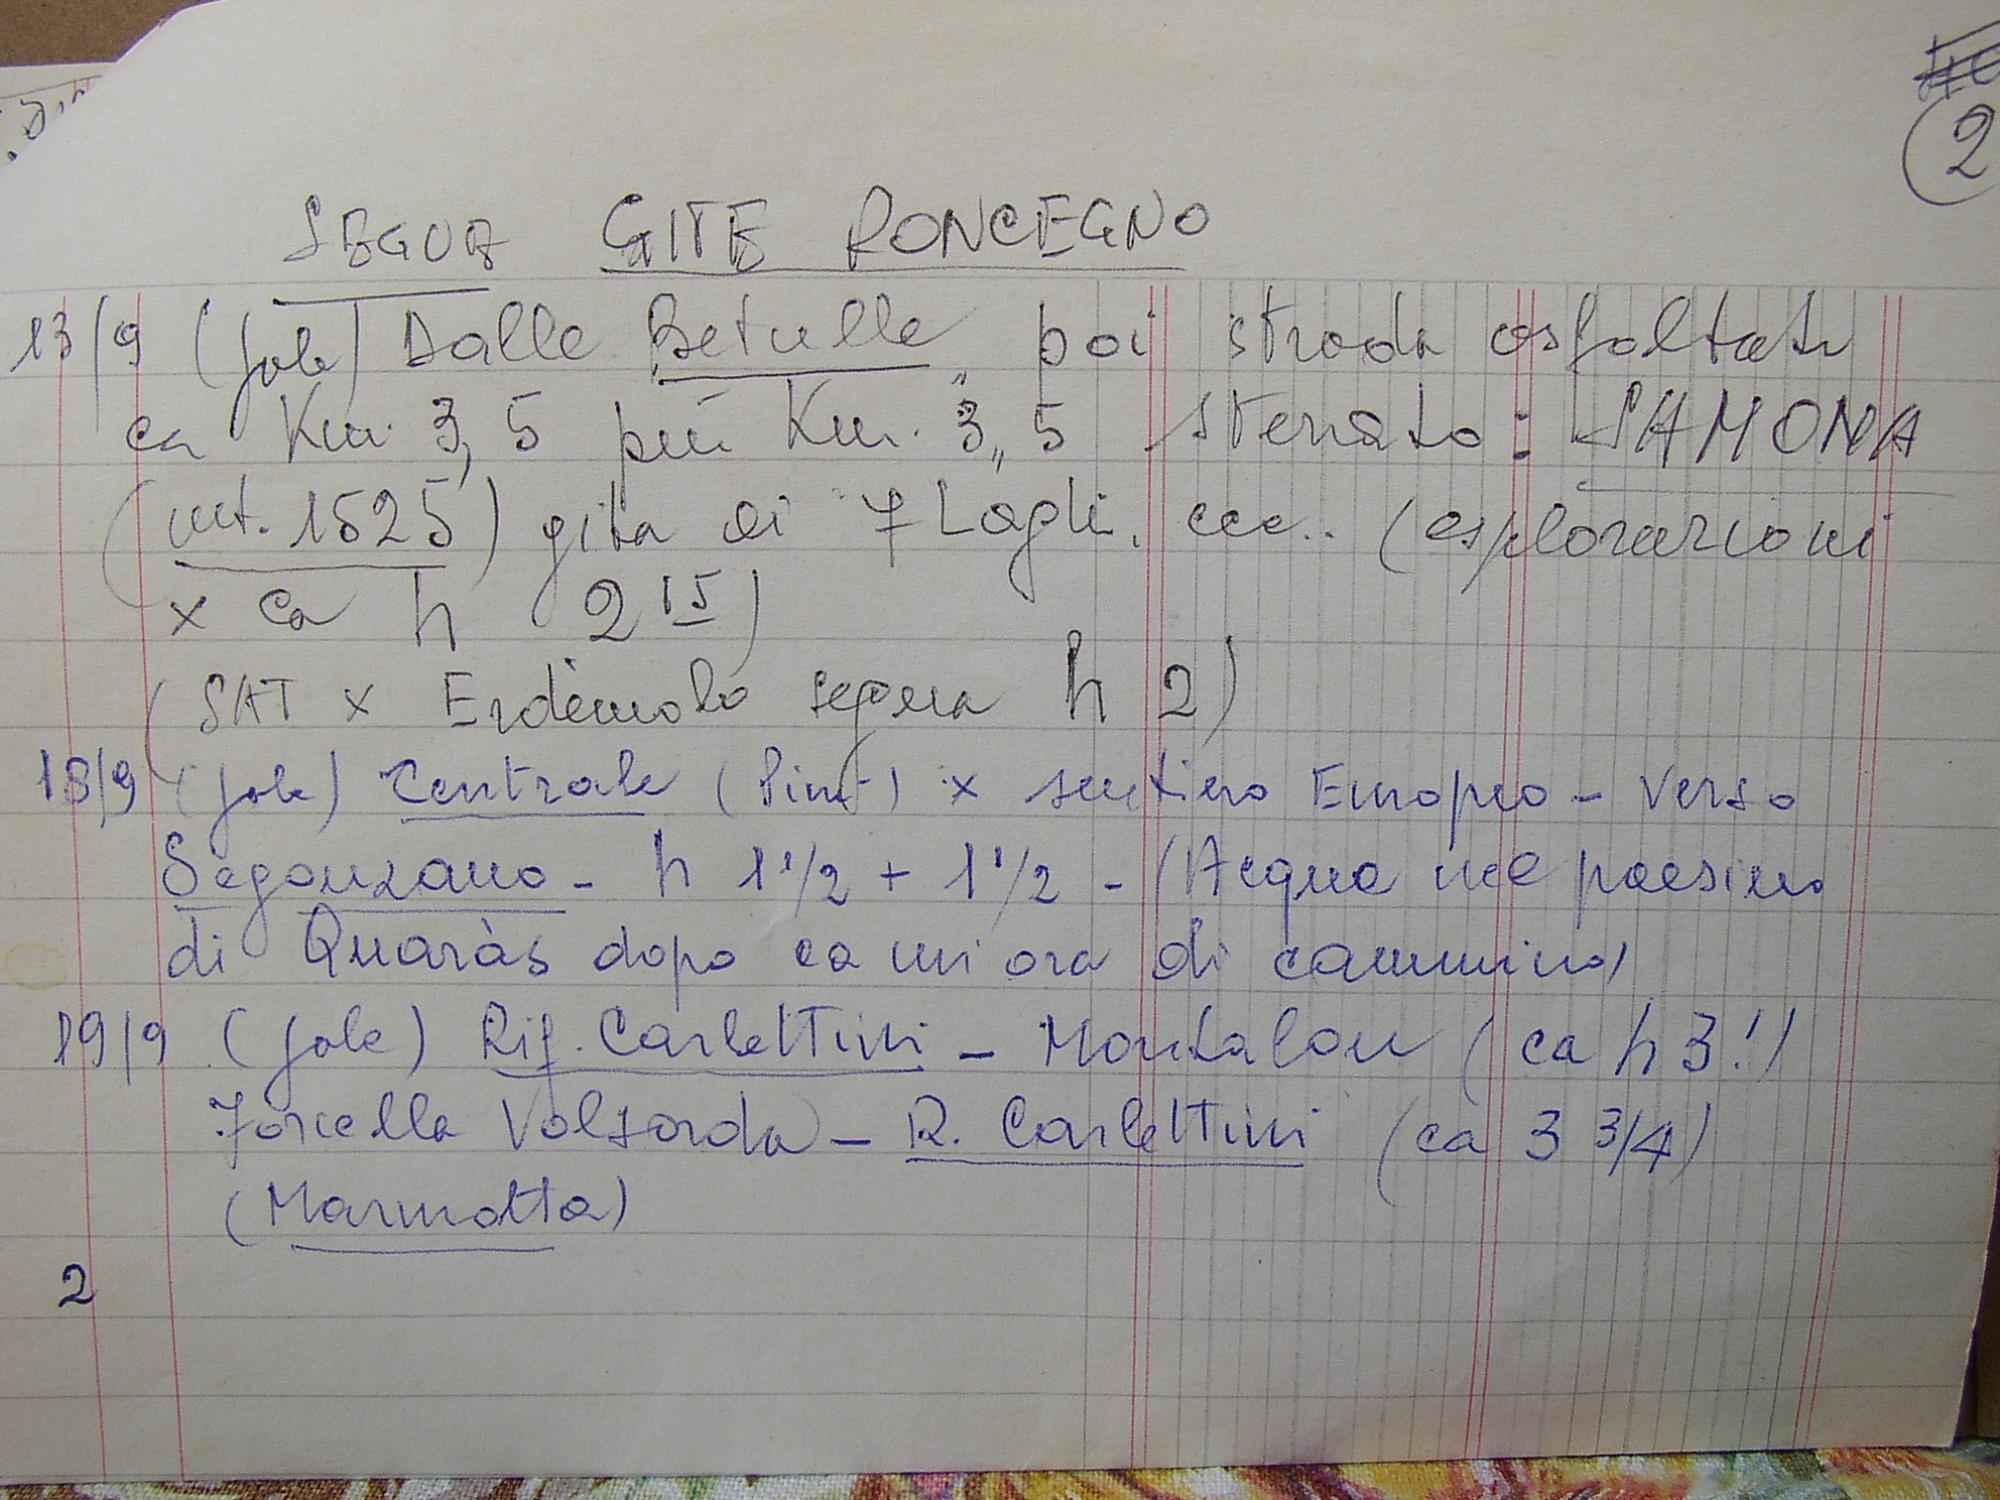 2
SEGUE GITE RONCEGNO
13/9 (Jole) Dalle Betulle, poi strada asfaltata
ca Km. 3,5 più Km. 3,5 sterrato: SAMONA
(mt. 1525) gita ai 7 Laghi, ecc.. (esplorazioni
x ca h 2 15)
(SAT x Erdèmolo segna h 2)
18/9 (Jole) Centrale (Pinè) x sentiero Europeo - Verso
Segonzano - h 1 1/2 + 1 1/2 - (Acqua nel paesino
di Quaràs dopo ca un'ora di cammino)
19/9 (Jole) Rif. Carlettini - Montalon (ca h 3!)
Forcella Valsorda - R. Carlettini (ca 3 3/4)
(Marmotta)
2